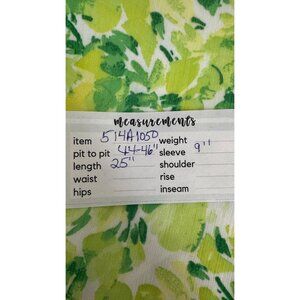 measurements
item 514A1050 weight
pit to pit 44-46" sleeve 9"
length 25" shoulder
waist rise
hips inseam